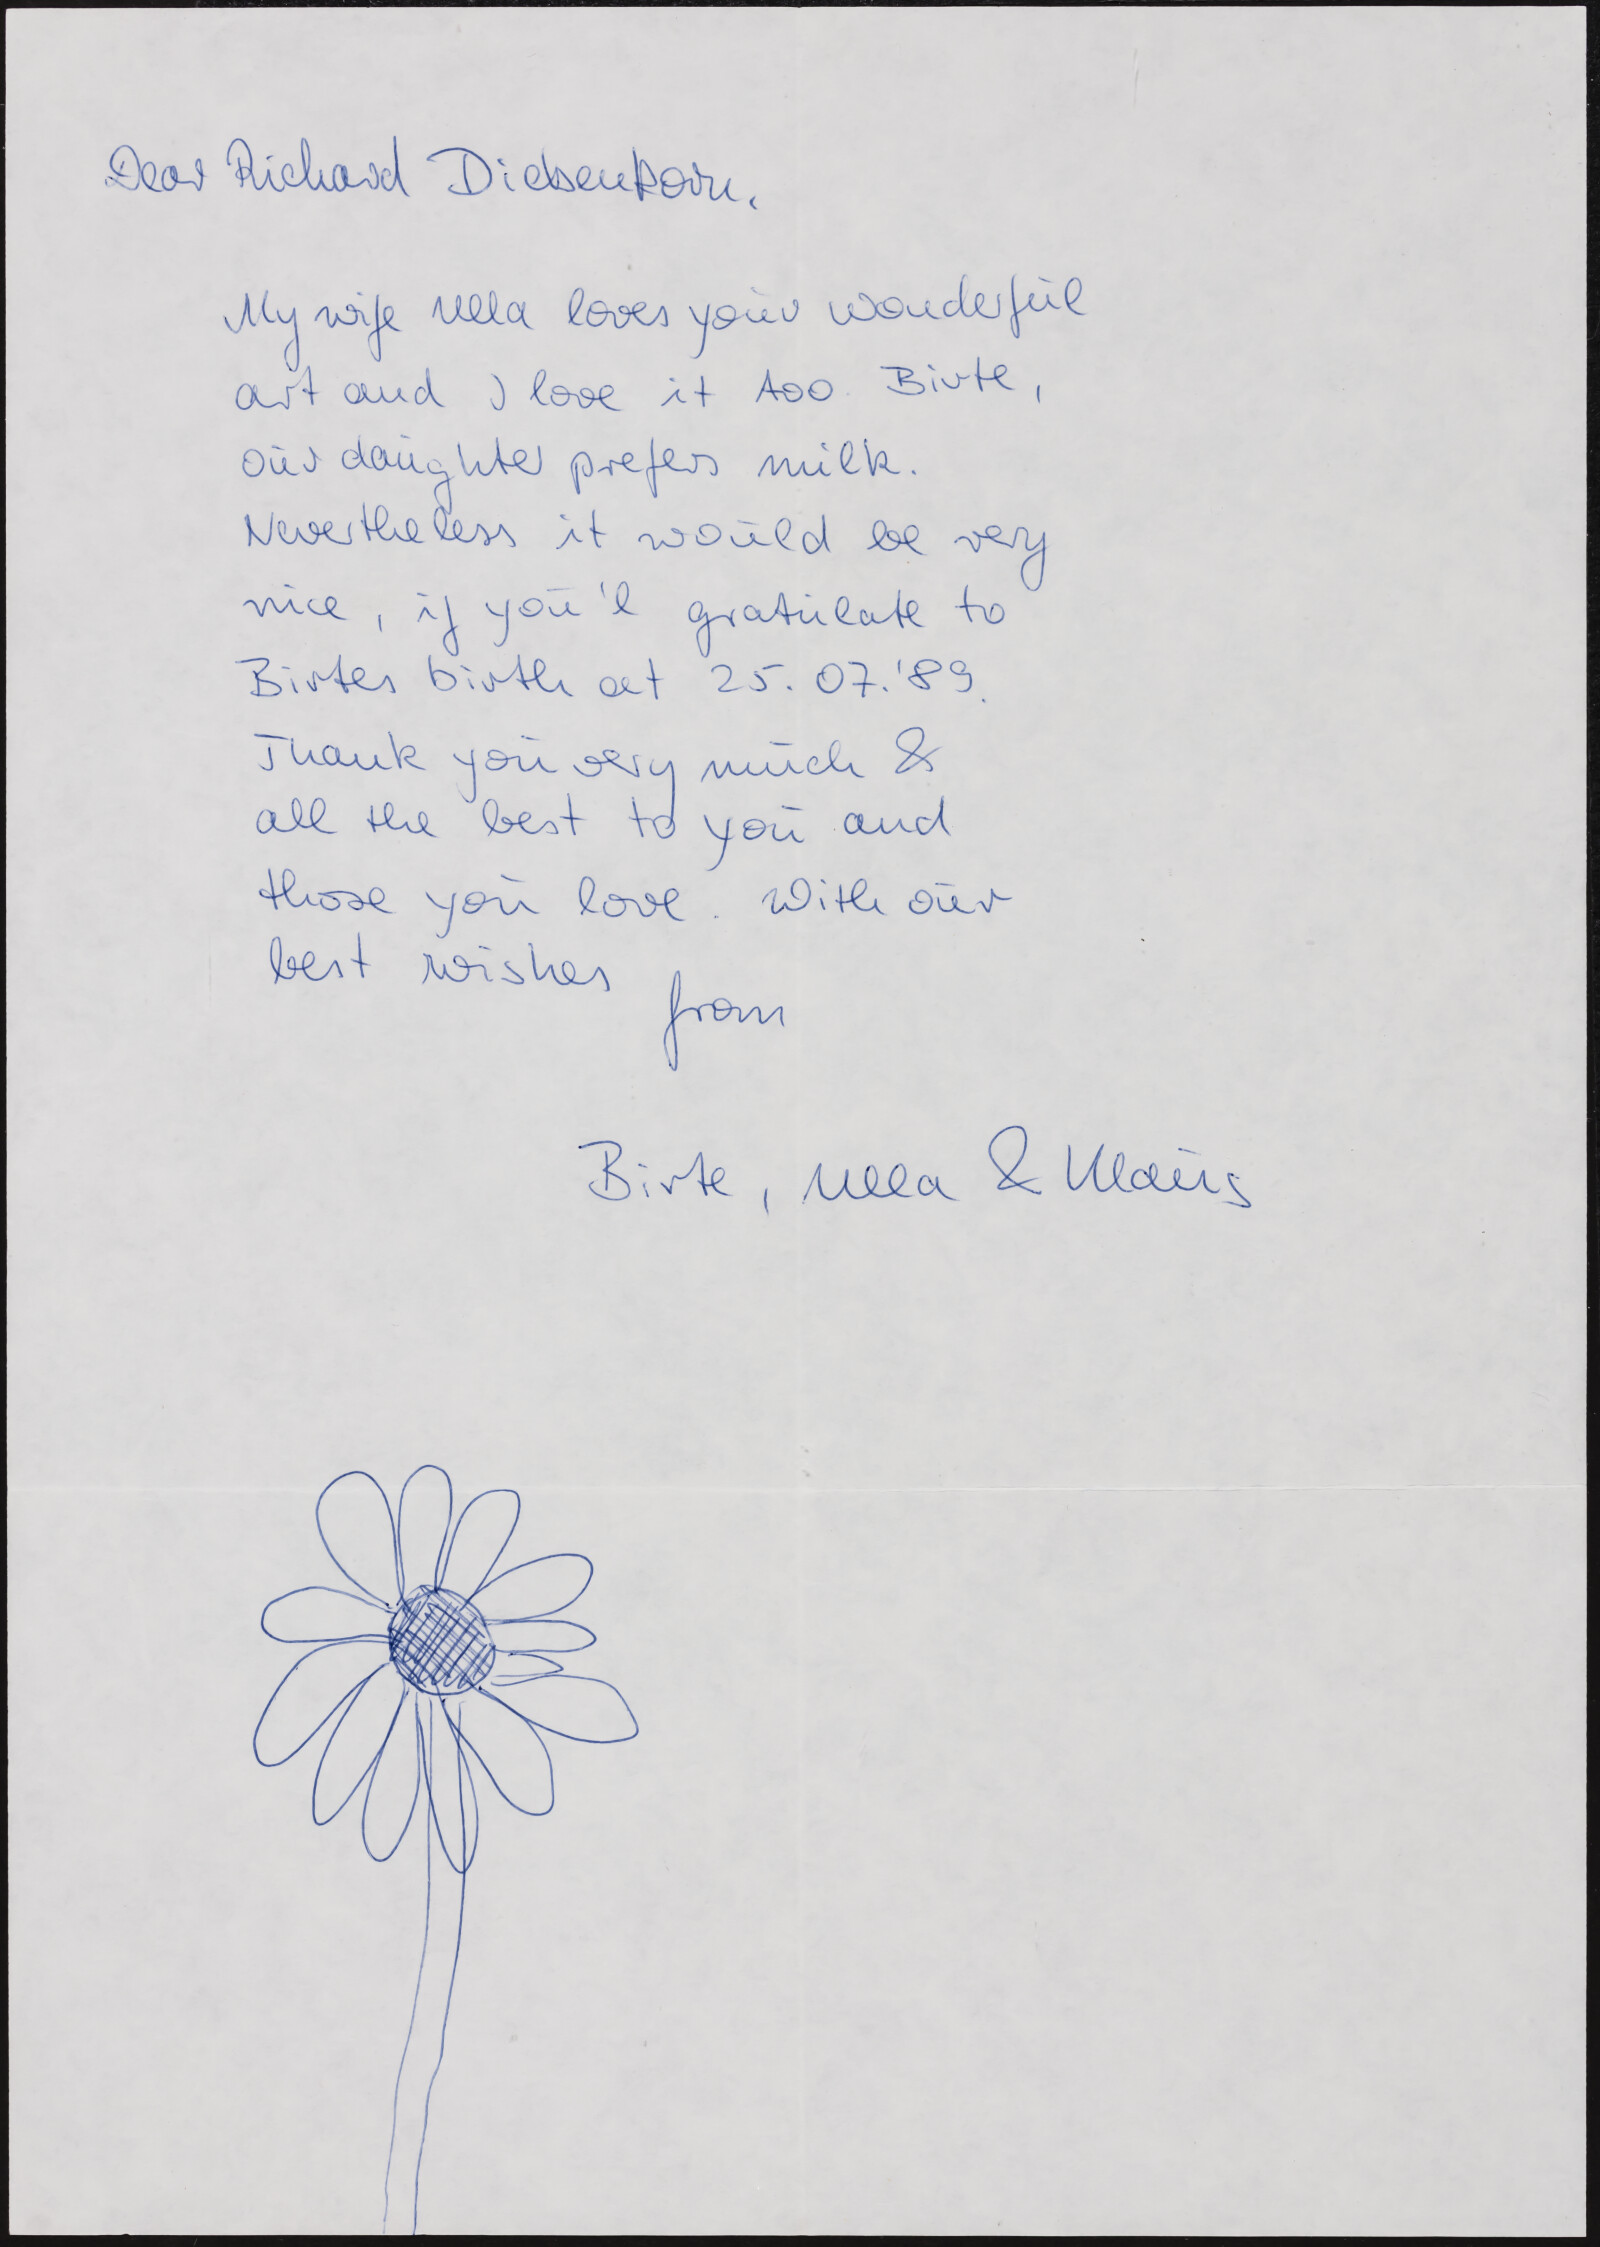 Dear Richard Diebenkorn.
My wife Ulla loves your wonderful
art and I love it too. Birte,
our daughter prefers milk.
Nevertheless it would be very
nice, if you'l gratulate to
Birtes birth at 25.07.'89.
Thank you very much &
all the best to you and
those you love. With our
best wishes from
Birte, Ulla & Klaus